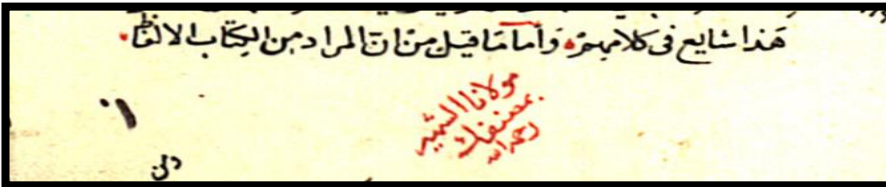 هذا شايع فى كلامهم وأما ما قيل من ان المراد من الكتاب الالفاظ
مولانا الشهير
بمصنفك
رحمه الله